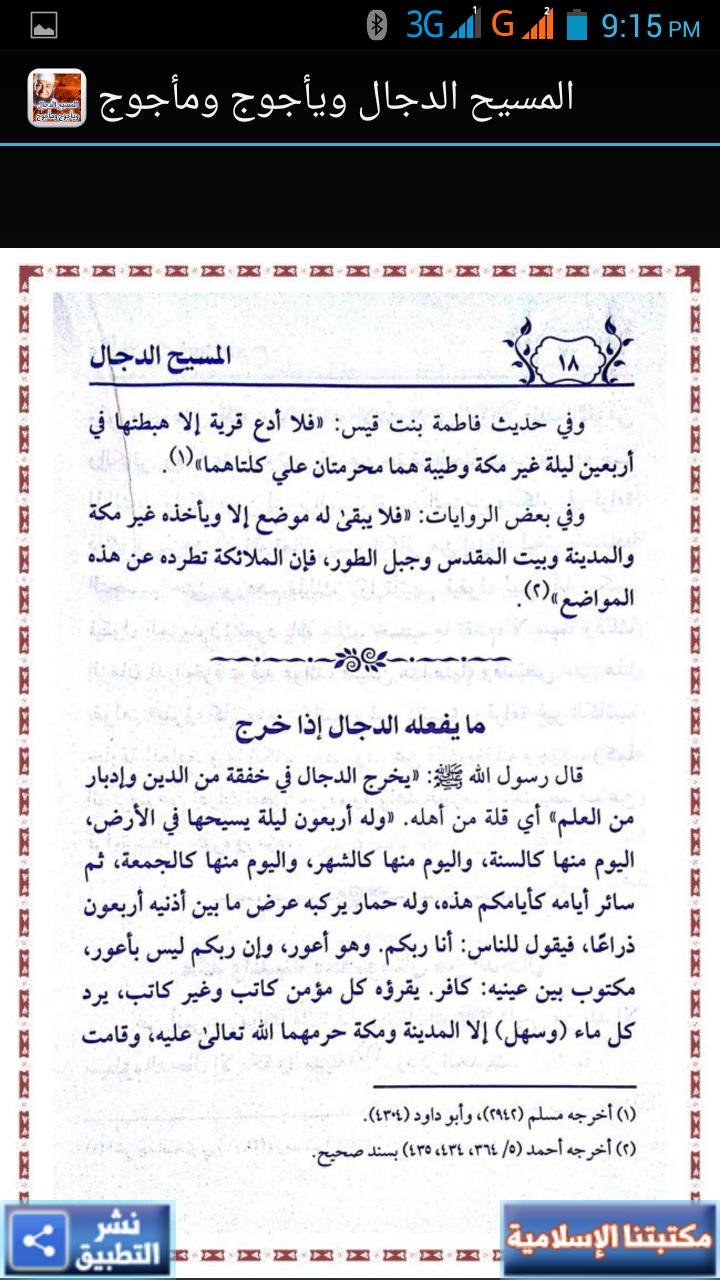 3G 1 G 2 9:15 PM
المسيح الدجال ويأجوج ومأجوج
١٨ المسيح الدجال
وفي حديث فاطمة بنت قيس: «فلا أدع قرية إلا هبطتها في
أربعين ليلة غير مكة وطيبة هما محرمتان علي كلتاهما»(١).
وفي بعض الروايات: «فلا يبقىٰ له موضع إلا ويأخذه غير مكة
والمدينة وبيت المقدس وجبل الطور، فإن الملائكة تطرده عن هذه
المواضع»(٢).
ما يفعله الدجال إذا خرج
قال رسول الله ﷺ: «يخرج الدجال في خفقة من الدين وإدبار
من العلم» أي قلة من أهله. «وله أربعون ليلة يسيحها في الأرض،
اليوم منها كالسنة، واليوم منها كالشهر، واليوم منها كالجمعة، ثم
سائر أيامه كأيامكم هذه، وله حمار يركبه عرض ما بين أذنيه أربعون
ذراعًا، فيقول للناس: أنا ربكم. وهو أعور، وإن ربكم ليس بأعور،
مكتوب بين عينيه: كافر. يقرؤه كل مؤمن كاتب وغير كاتب، يرد
كل ماء (وسهل) إلا المدينة ومكة حرمهما الله تعالىٰ عليه، وقامت
(١) أخرجه مسلم (٢٩٤٢)، وأبو داود (٤٣٠٤).
(٢) أخرجه أحمد (٥/ ٣٦٤، ٤٣٤، ٤٣٥) بسند صحيح.
نشر
التطبيق
مكتبتنا الإسلامية